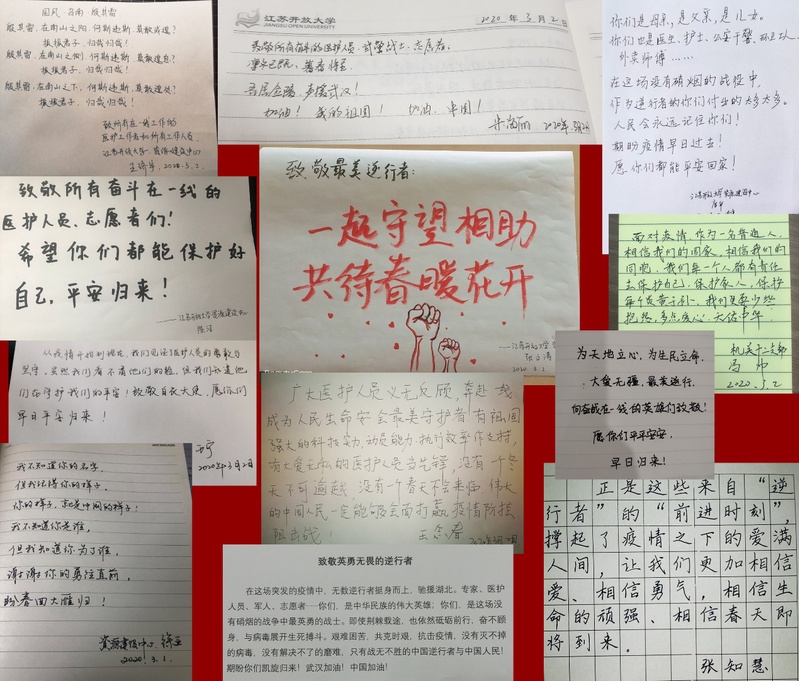 国风·召南·殷其雷
殷其雷，在南山之阳，何斯违斯，莫敢或遑？
振振君子，归哉归哉！
殷其雷，在南山之侧，何斯违斯，莫敢遑息？
振振君子，归哉归哉！
殷其雷，在南山之下，何斯违斯，莫敢遑处？
振振君子，归哉归哉！
致所有在一线工作的
医护工作者和所有工作人员
2020.3.2.
江苏开放大学
JIANGSU OPEN UNIVERSITY
2020年3月2日
致敬所有奋斗的医护人员、武警战士、志愿者。
寒冬已既，春暖将至
吾居金陵，声援武汉！
加油！我的祖国！ 加油，中国！
2020年3月2日
你们是母亲，是父亲，是儿女。
你们也是医生、护士、公安干警、环卫工人、
外卖师傅……
在这场没有硝烟的战役中，
作为逆行者的你们付出的太多太多。
人民会永远记住你们！
期盼疫情早日过去！
愿你们都能平安回家！
致敬所有奋斗在一线的
医护人员、志愿者们！
希望你们都能保护好
自己，平安归来！
——江苏开放大学资源建设中心
致敬最美逆行者：
一起守望相助
共待春暖花开
——江苏开放大学
2020.3.2
面对疫情，作为一名普通人，
相信我们的国家，相信我们的
同胞，我们每一个人都有责任
去保护自己，保护家人，保护
每个炎黄子孙。我们要少些
抱怨，多点爱心，天佑中华
机关十二支部
2020.3.2
从疫情开始到现在，我们见证了医护人员的勇敢与
坚守，虽然我们看不见他们的脸，但我们知道他
们在守护我们的平安！致敬白衣天使，愿你们
早日平安归来！
2020年3月2日
广大医护人员义无反顾，奔赴一线
成为人民生命安全最美守护者，有祖国
强大的科技实力，动员能力，执行效率作支持，
有大爱无私的医护人员当先锋，没有一个冬
天不可逾越，没有一个春天不会来临，伟大
的中国人民一定能够全面打赢疫情防控
阻击战！
为天地立心，为生民立命。
大爱无疆，最美逆行。
向奋战在一线的英雄们致敬！
愿你们平平安安，
早日归来！
我不知道你的名字，
但我记得你的样子，
你的样子，就是中国的样子！
我不知道你是谁，
但我知道你为了谁，
谢谢你的勇往直前，
盼春回大雁归！
资源建设中心
2020.3.1.
致敬英勇无畏的逆行者
在这场突发的疫情中，无数逆行者挺身而上，驰援湖北。专家、医护
人员、军人、志愿者—你们，是中华民族的伟大英雄；你们，是这场没
有硝烟的战争中最英勇的战士。即使荆棘载途，也依然砥砺前行，奋不顾
身，与病毒展开生死搏斗。艰难困苦，共克时艰，抗击疫情，没有灭不掉
的病毒，没有解决不了的磨难，只有战无不胜的中国逆行者与中国人民！
期盼你们凯旋归来！武汉加油！中国加油！
正是这些来自“逆
行者”的“前进时刻”，
撑起了疫情之下的爱满
人间，让我们更加相信
爱、相信勇气，相信生
命的顽强、相信春天即
将到来．
张知慧